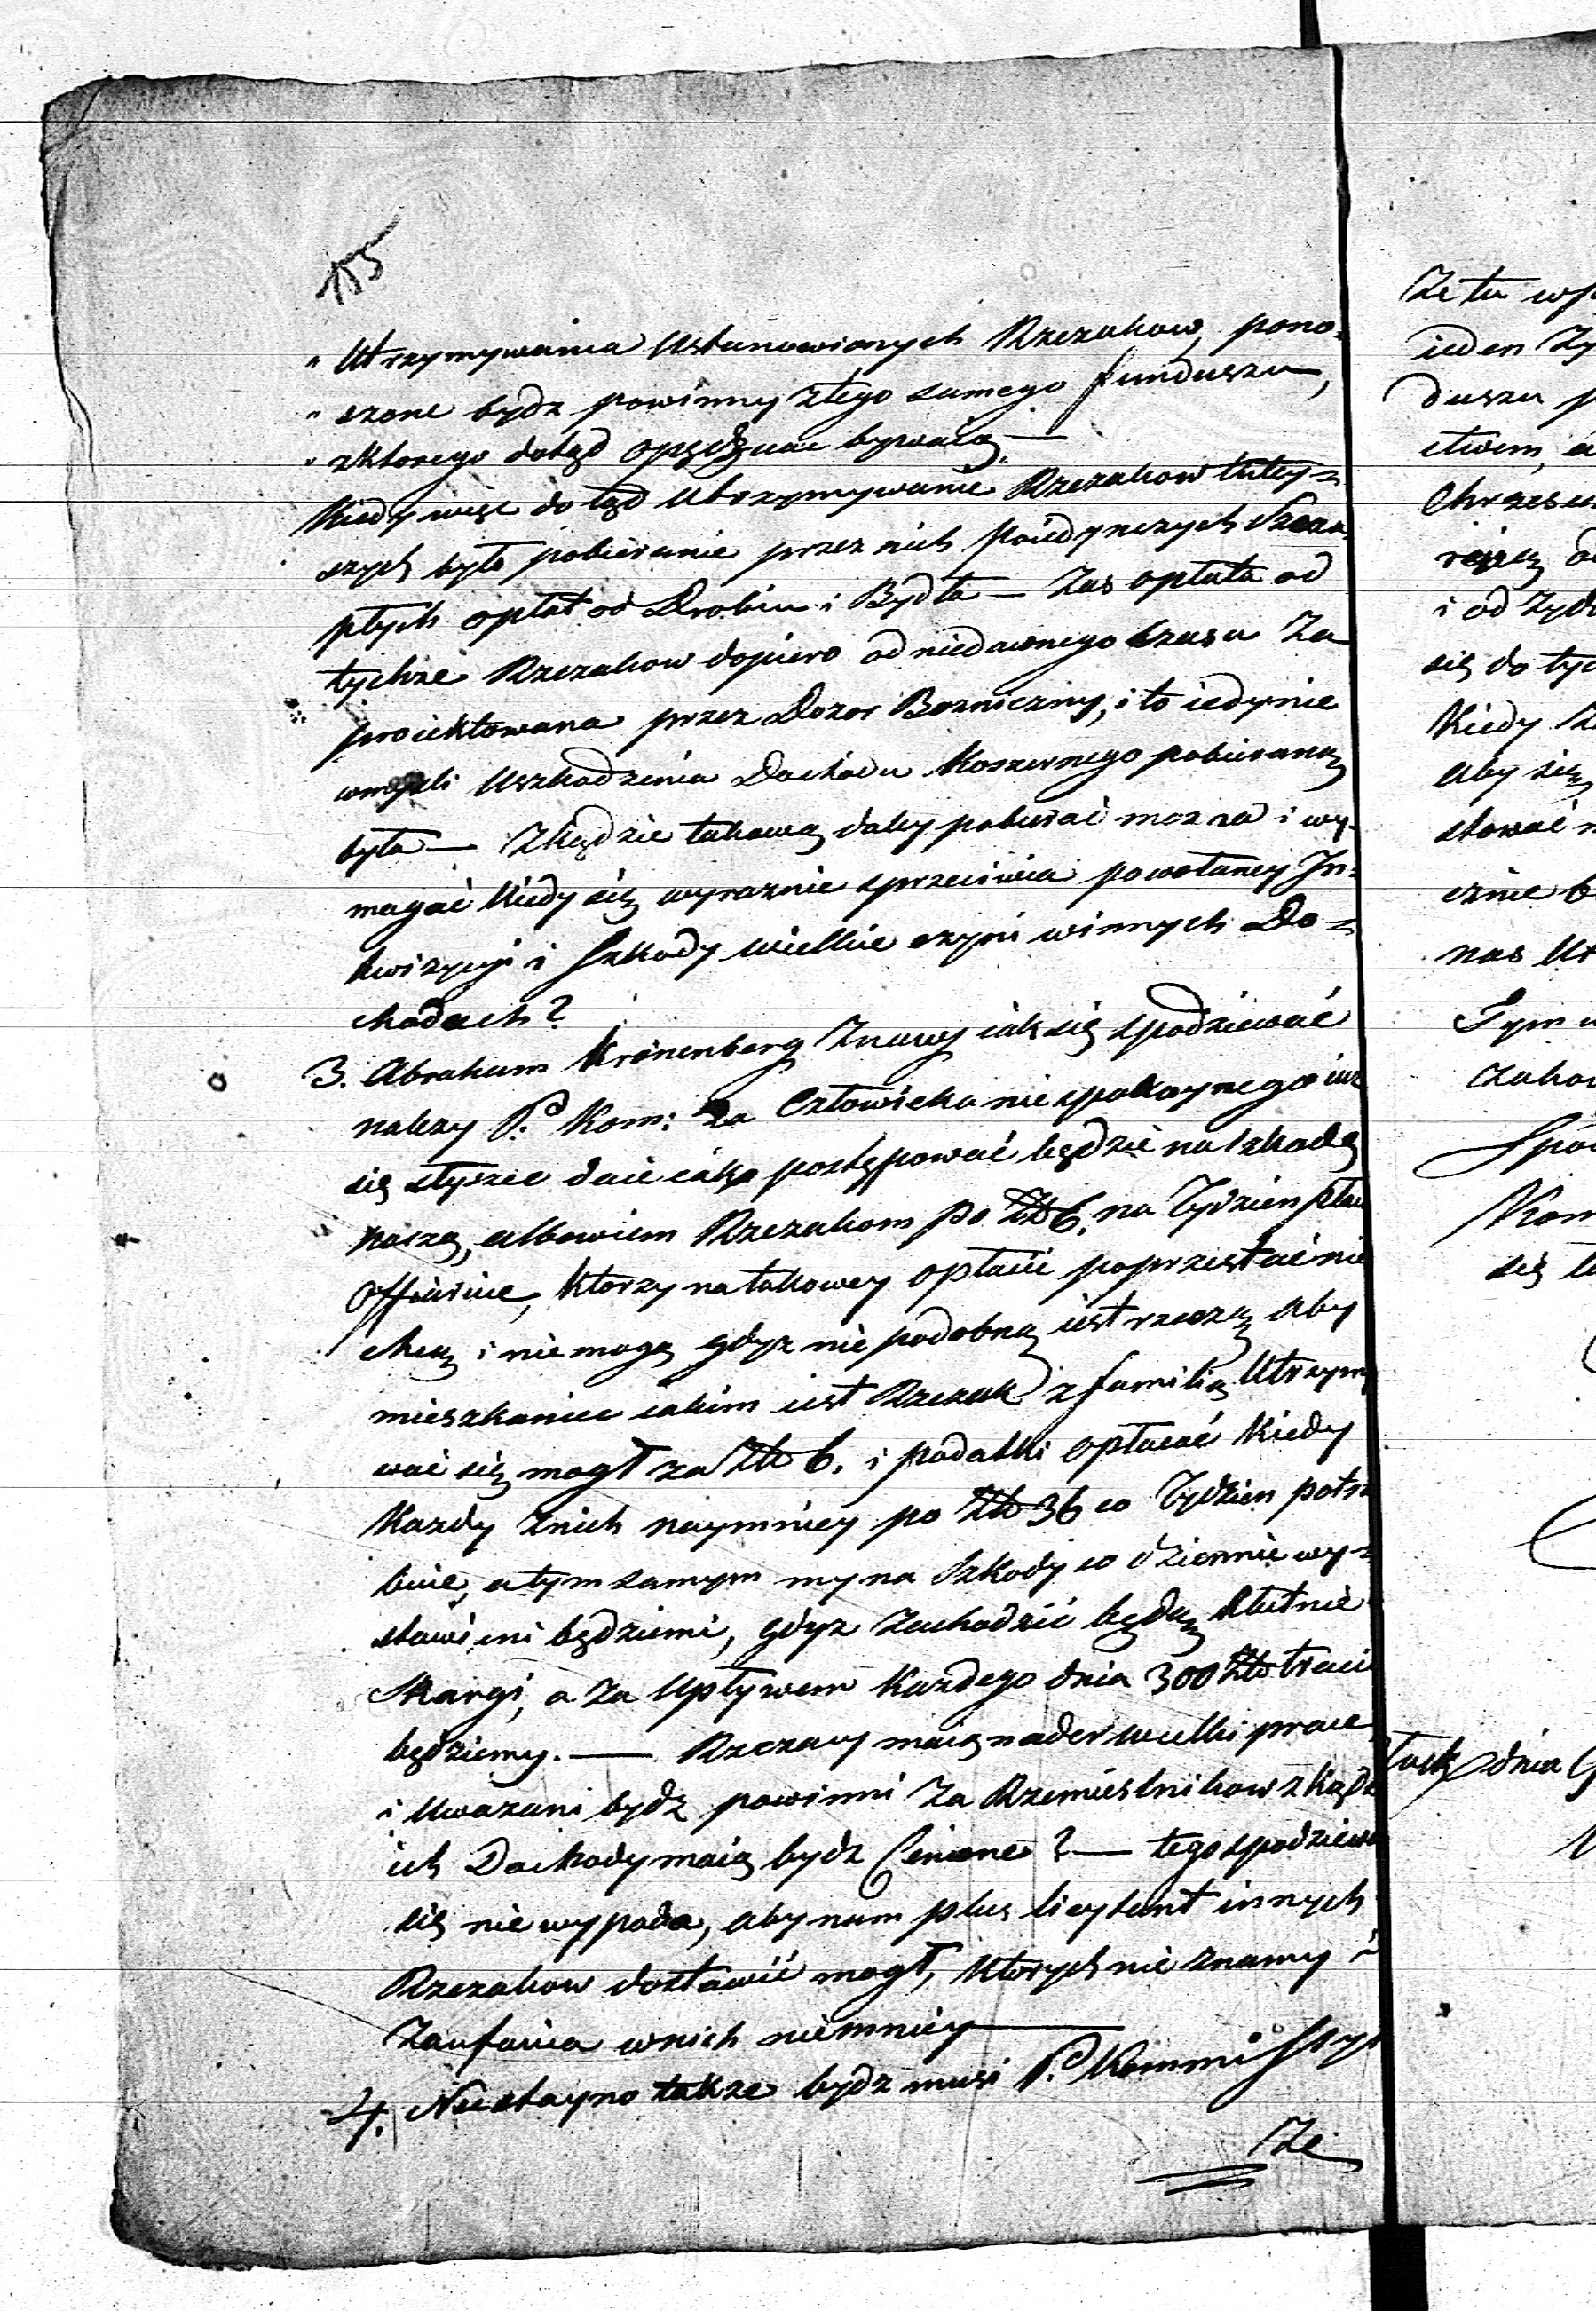 „ Utrzymywania Ustanowionych Rzezakow, pono-
„ szone bydz powinny z tego samego funduszu,
„ z ktorego dotąd opędzane bywaią —
Kiedy więc do tąd Utrzymywanie Rzezakow tutey=
szych było pobieranie przez nich poiedynczych
płych opłat od Drobiu i Bydła — Zas opłata od
tychze Rzezakow dopiero od niedawnego Czasu Za
proiektowana przez Dozor Bozniczny, i to iedynie
Uszkodzenia Dochodu Koszernego pobieraną
była — Zkądzie takową daley pobierać mozna i wy-
magać Kiedy się wyraznie sprzeciwia powołaney In=
kwizycyi i Szkody wielkie czyni w innych Do=
chodach?
3. Abraham Kronenberg Znany iak się spodziewać
nalezy P. Kom: Za Człowieka niespokoynego iuz
się słyszec daie iako postępować będzie na szkodę
naszą, albowiem Rzezakom po Zł 6. na Tydzien płac
Offiaruie, Ktorzy na takowey opłacie poprzestać nie
chcą i nie mogą gdyz nie podobną iest rzeczą aby
mieszkaniec iakim iest Rzezak z familią Utrzymy
wać się mogł za Zł 6. i podatki opłacać Kiedy
Kazdy Znich naymniey po Zł 36 co Tydzien potrze
buie, a tym samym my na Szkody co dziennie wy=
stawieni będziemi, gdyz Zachodzić będą
Skargi, a Za Upływem Kazdego dnia 300 Zło tracić
będziemy. — Rzezacy maią nader wielki prace
i Uwazani bydz powinni Za Rzemieslnikow zkądze
ich Dochody maią bydz Cenione? — tego spodziewa
się nie wypada, aby nam plus licytant innych
Rzezakow dostawić mogł, Ktorych nie znamy i
Zaufania w nich niemniey —
4. Nie tayno takze bydz musi P. Kommissyi
Ze
Ze tu
ieden
duszu
ctwem, a
i od
się do
Kiedy
Aby się
stować
cznie
nas
Tym
Kom
się
dnia